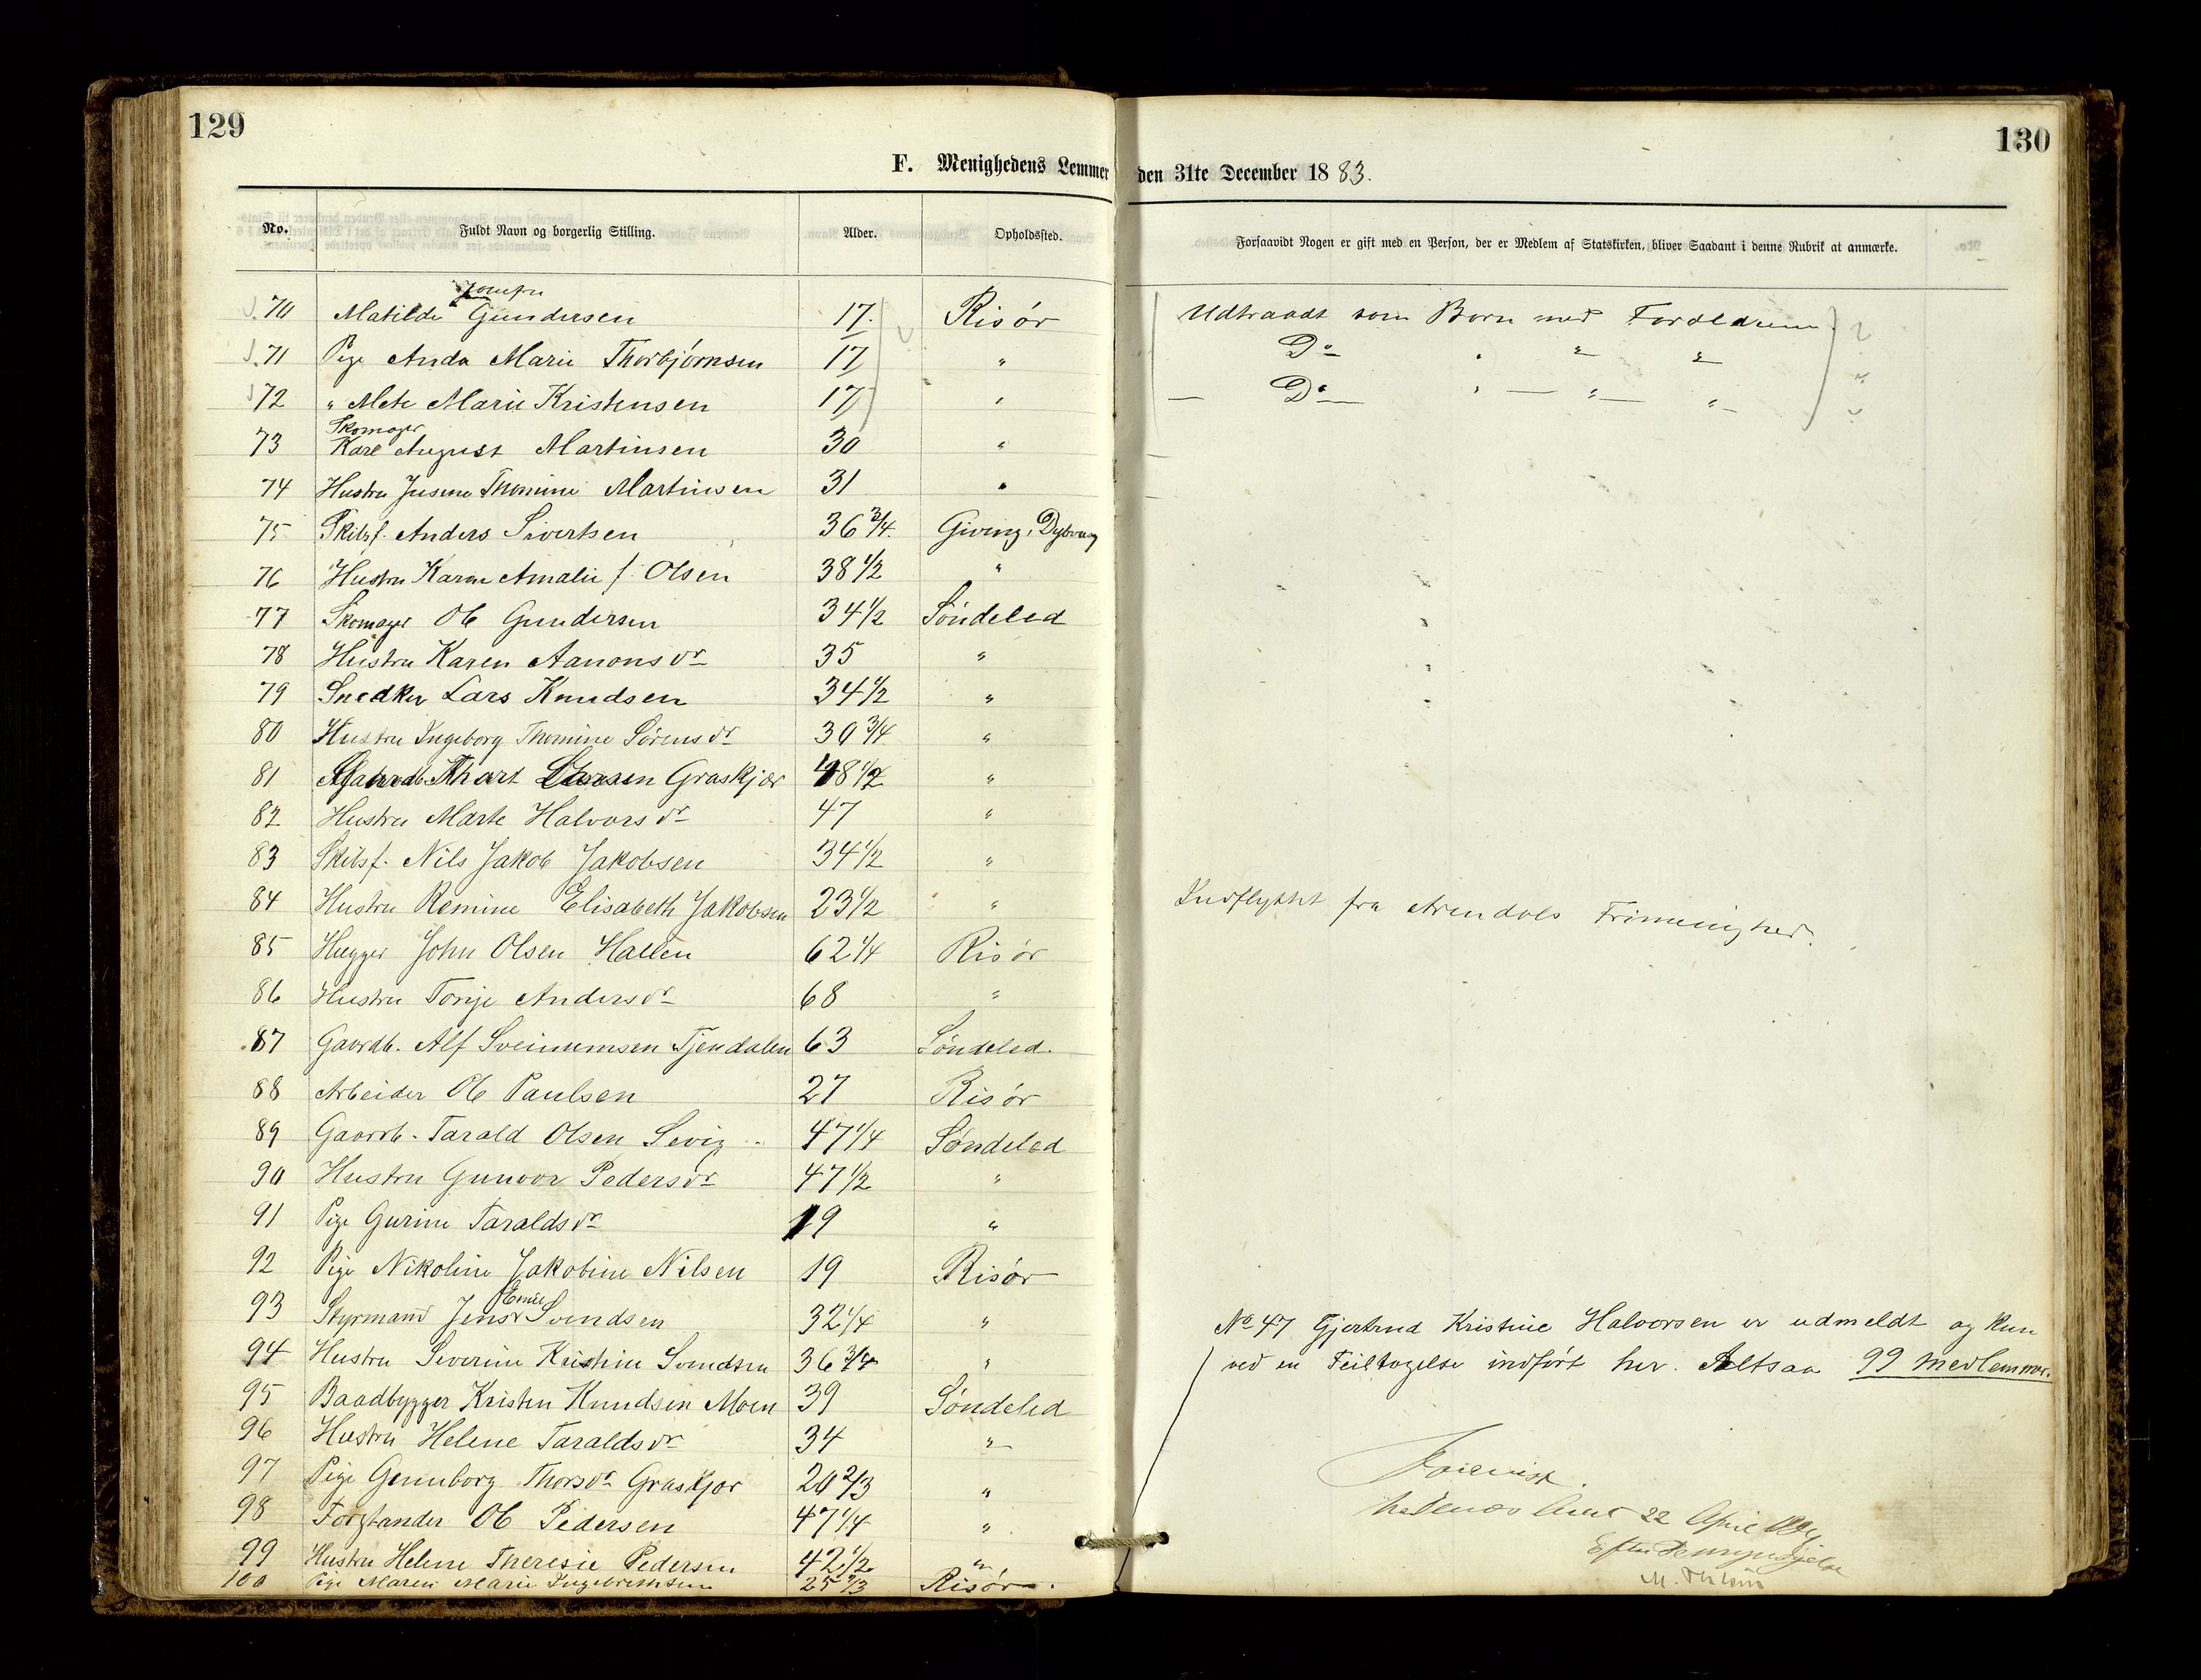 129
130
F. Menighedens Lemmer den 31te December 1883.
No. Fuldt Navn og borgerlig Stilling. Alder. Opholdssted. Forsaavidt Nogen er gift med en Person, der er Medlem af Statskirken, bliver Saadant i denne Rubrik at anmærke.
Jomfru
70 Matilde Gundersen 17. Risør Udtraadt som Børn med Forældrene
71 Pige Anda Marie Thorbjørnsen 17 " Do " " "
72 " Mete Marie Kristensen 17 " Do " " "
Skomager
73 Karl August Martinsen 30 "
74 Hustru Jusine Thomine Martinsen 31 "
75 Skibsf. Anders Sivertsen 36 3/4. Giving, Dybvaag
76 Hustru Karen Amalie f. Olsen 38 1/2 "
77 Skomager Ole Gundersen 34 1/2 Søndeled
78 Hustru Karen Aanonsdr 35 "
79 Snedker Lars Knudsen 34 1/2 "
80 Hustru Ingeborg Thomine Sørensdr 30 3/4 "
81 Graskjær 48 1/2 "
82 Hustru Marte Halvorsdr 47 "
83 Skibsf. Nils Jakob Jakobsen 34 1/2 "
84 Hustru Remine Elisabeth Jakobsen 23 1/2 " Indflyttet fra Arendals Frimenighed.
85 Hugger John Olsen Hallen 62 1/4 Risør
86 Hustru Tonje Andersdr 68 "
87 Gaardb. Alf Sveinumsen Tjendalen 63 Søndeled.
88 Arbeider Ole Paulsen 27 Risør
89 Gaardb. Tarald Olsen Sevig 47 1/4 Søndeled
90 Hustru Gunvor Pedersdr 47 1/2 "
91 Pige Gurine Taraldsdr 19 "
92 Pige Nikoline Jakobine Nilsen 19 Risør
Emil
93 Styrmand Jens Svendsen 32 1/4 "
94 Hustru Severine Kristine Svendsen 36 3/4 "
95 Baadbygger Kristen Knudsen Moen 39 Søndeled
96 Hustru Helene Taraldsdr 34 "
97 Pige Gunnborg Thorsdr Graskjær 20 2/3 "
98 Forstander Ole Pedersen 47 1/4 "
99 Hustru Helene Theresie Pedersen 42 1/2 "
100 Pige Maren Marie Ingebretsen 25 2/3 Risør.
No 47 Gjertrud Kristine Halvorsen er udmeldt og kun
ved en Feiltagelse indført her. Altsaa 99 Medlemmer.
Forevist.
Nedenæs Amt 22 April 1884
Efter Bemyndigelse